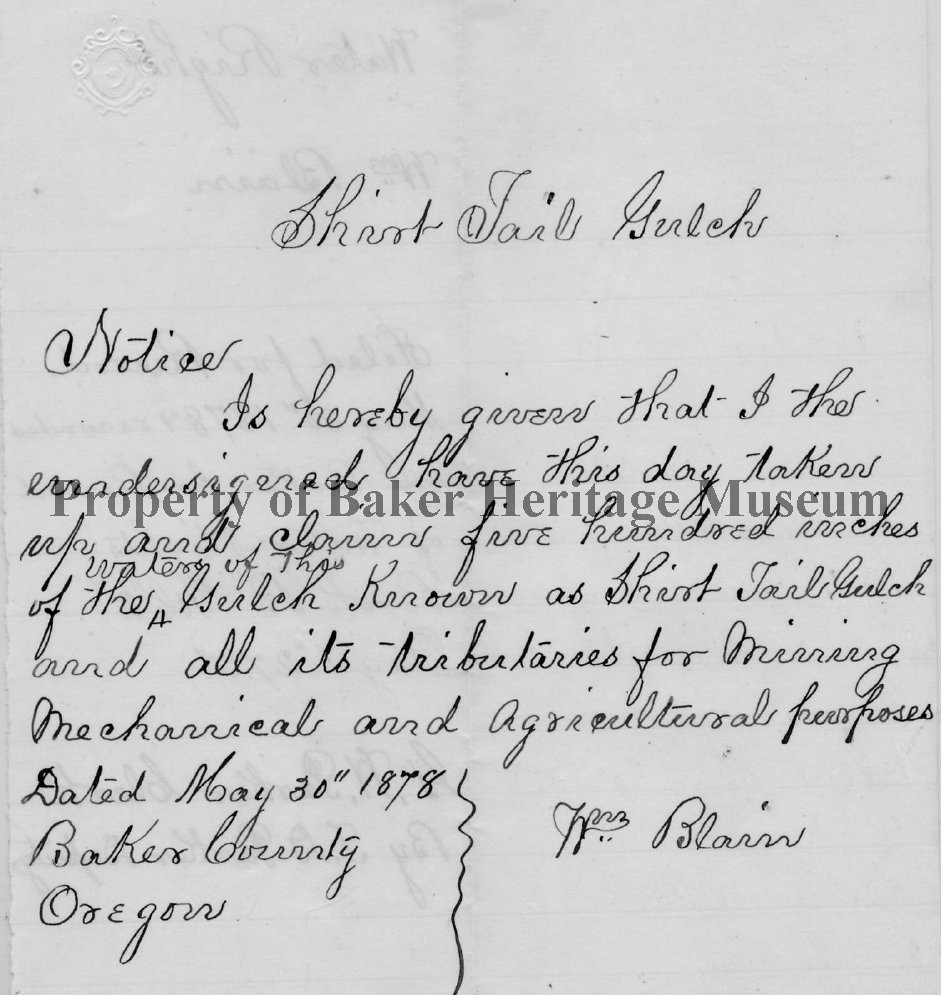 Shirt Tail Gulch
Notice
Is hereby given that I the
undersigned have this day taken
Property of Baker Heritage Museum
up and claim five hundred inches
waters of This
of the ^ Gulch Known as Shirt Tail Gulch
and all its tributaries for Mining
Mechanical and Agricultural purposes
Dated May 30" 1878
Baker County
Oregon
Wm Blain